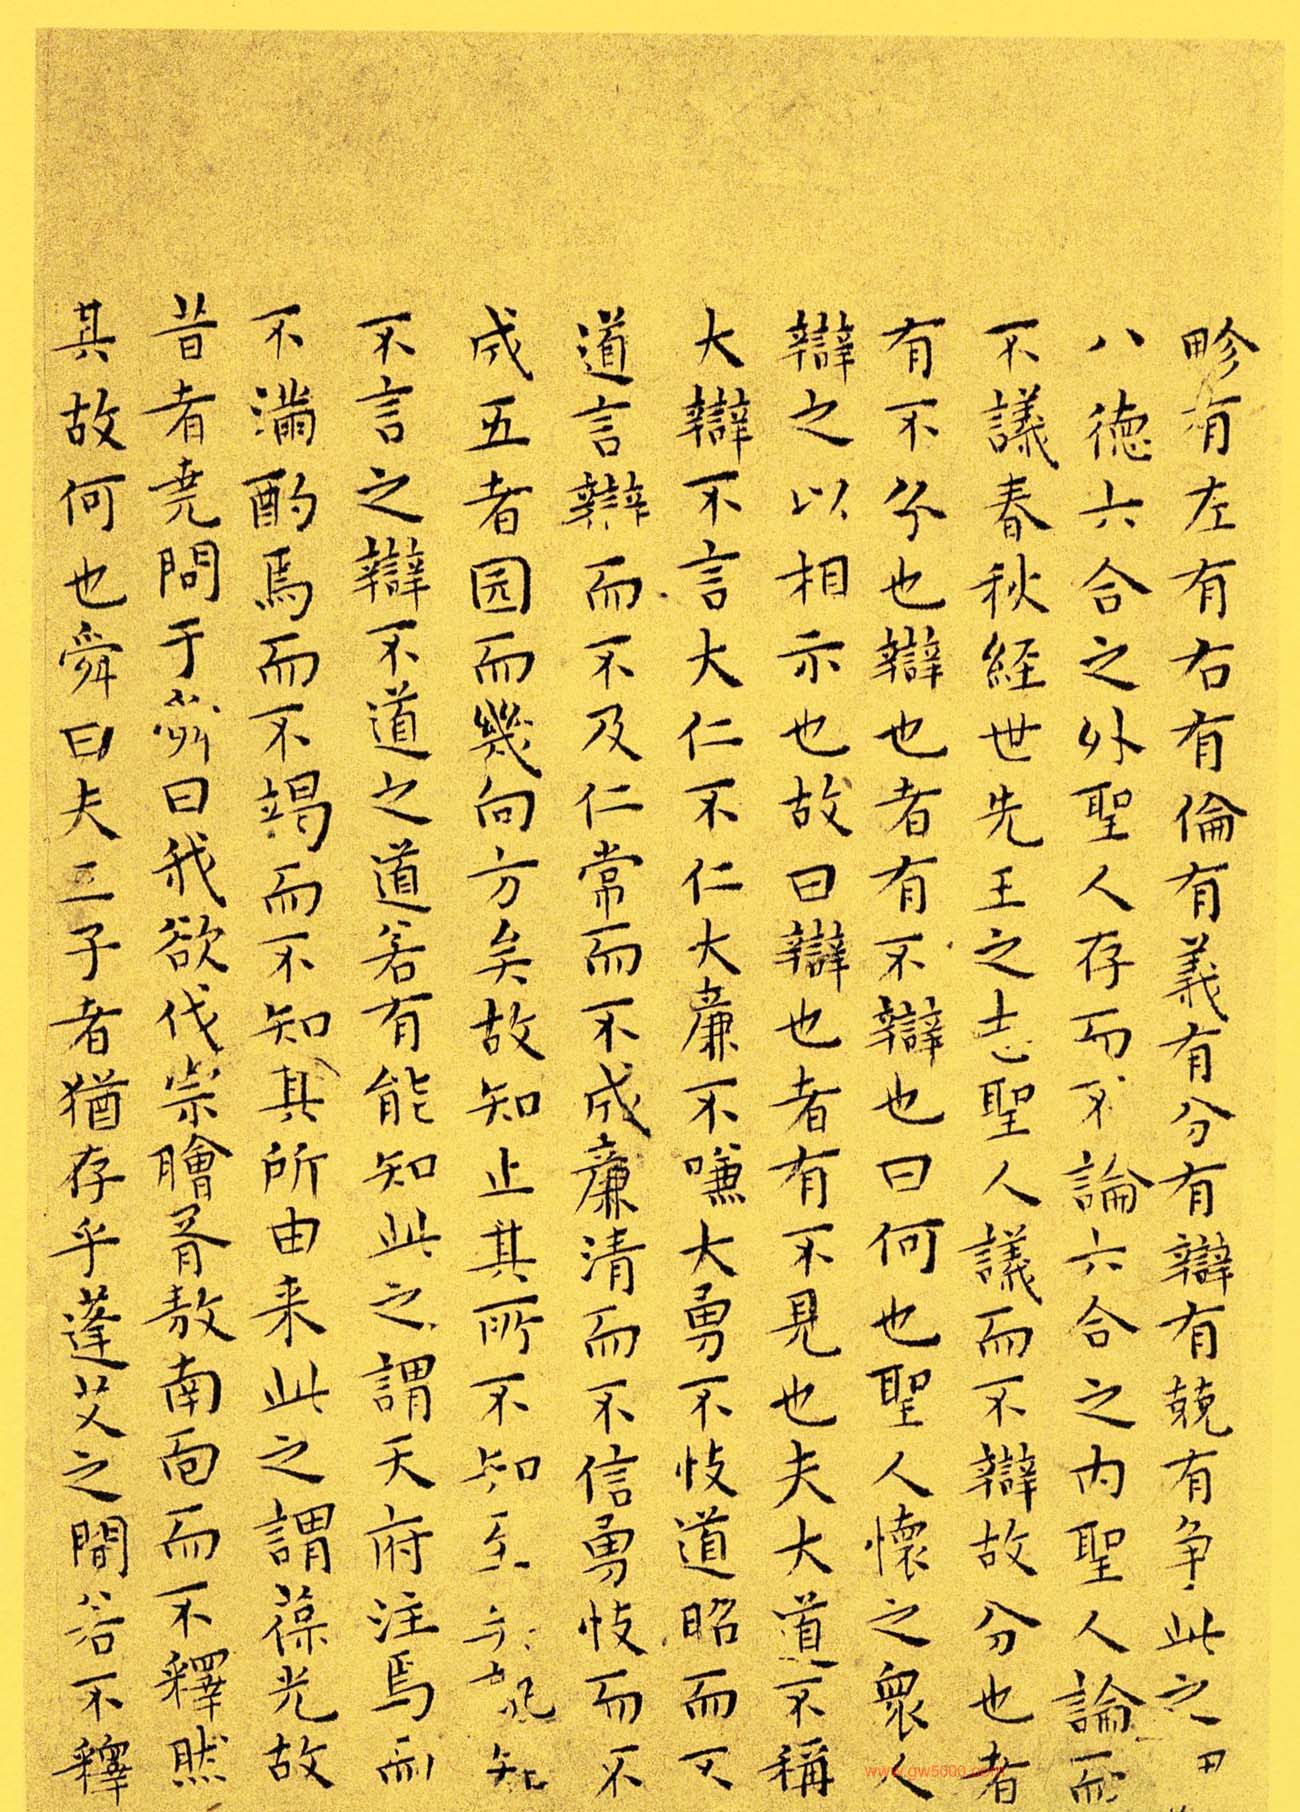 畛有左有右有倫有義有分有辯有競有争此之
八德六合之外聖人存而不論六合之内聖人論而
不議春秋経世先王之志聖人議而不辯故分也者
有不分也辯也者有不辯也曰何也聖人懷之衆人
辯之以相示也故曰辯也者有不見也夫大道不稱
大辯不言大仁不仁大廉不嗛大勇不忮道昭而不
道言辯而不及仁常而不成廉清而不信勇忮而不
成五者园而幾向方矣故知止其所不知至矣孰知
不言之辯不道之道若有能知此之謂天府注焉而
不滿酌焉而不竭而不知其所由来此之謂葆光故
昔者尭問于舜曰我欲伐宗膾胥敖南面而不釋然
其故何也舜曰夫三子者猶存乎蓬艾之間若不釋
www.gw5000.com